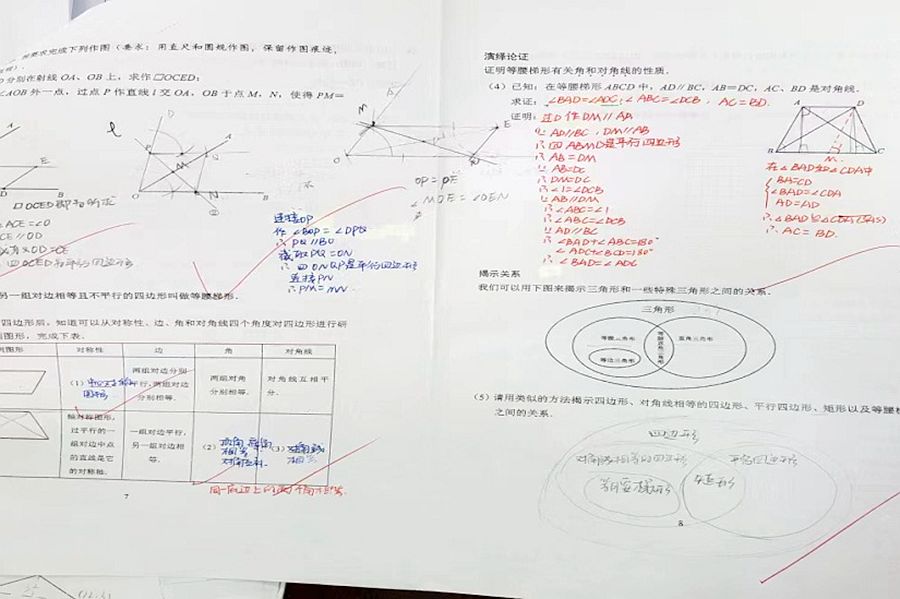 按要求完成下列作图（要求：用直尺和圆规作图，保留作图痕迹，
分别在射线 OA、OB 上，求作▱OCED；
∠AOB 外一点，过点 P 作直线 l 交 OA，OB 于点 M，N，使得 PM=
▱OCED即为所求
∠ACE=∠O
CE∥OD
OD=CE
四OCED是平行四边形
OP=PE
∠MOE=∠OEN
连接OP
作∠BOP=∠OPQ
∴PQ∥BO
截取PQ=ON
∴四ONQP是平行四边形
连接PN
∴PM=MN
另一组对边相等且不平行的四边形叫做等腰梯形.
四边形后，知道可以从对称性、边、角和对角线四个角度对四边形进行研
图形，完成下表.
例图形 对称性 边 角 对角线
（1）中心对称图形
两组对边分别平行，两组对边分别相等.
两组对角分别相等.
对角线互相平分.
轴对称图形，过平行的一组对边中点的直线是它的对称轴.
一组对边平行，另一组对边相等.
（2）
（3）对角线相等
同一底边上的两个角相等.
7
演绎论证
证明等腰梯形有关角和对角线的性质.
（4）已知：在等腰梯形 ABCD 中，AD∥BC，AB=DC，AC、BD 是对角线.
求证：∠BAD=∠ADC；∠ABC=∠DCB，AC=BD.
证明：过D作DM∥AB
∵AD∥BC，DM∥AB
∴四ABMD是平行四边形
∴AB=DM
∵AB=DC
∴DM=DC
∴∠1=∠DCB
∵AB∥DM
∴∠ABC=∠1
∴∠ABC=∠DCB
∵AD∥BC
∴∠BAD+∠ABC=180°
∠ADC+∠BCD=180°
∴∠BAD=∠ADC
A D
B M C
在△BAD和△CDA中
BA=CD
∠BAD=∠CDA
AD=AD
∴△BAD≌△CDA(SAS)
∴AC=BD.
揭示关系
我们可以用下图来揭示三角形和一些特殊三角形之间的关系.
三角形
等腰三角形
等腰直角三角形
直角三角形
等边三角形
（5）请用类似的方法揭示四边形、对角线相等的四边形、平行四边形、矩形以及等腰梯
之间的关系.
四边形
对角线相等的四边形 平行四边形
等腰梯形 矩形
8